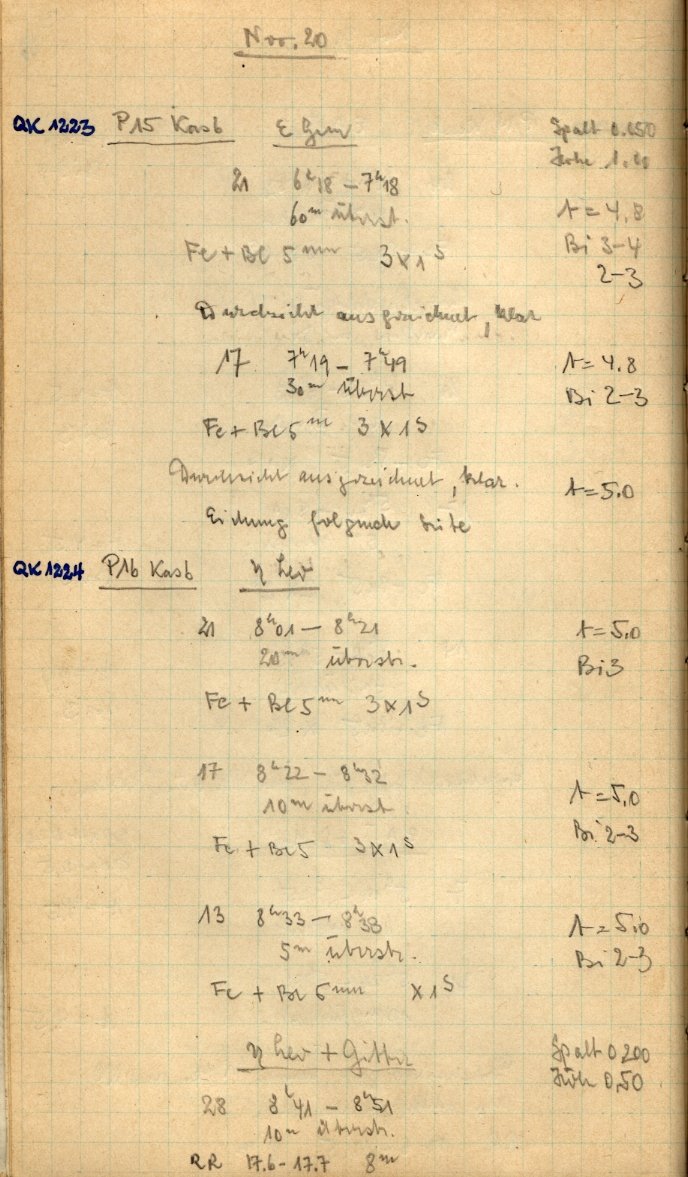 Nov. 20
QK 1223 P15 Kas6 ε Gem Spalt 0.050
Höhe 1.00
21 6ʰ18 – 7ʰ18
60ᵐ überst. A = 4.8
Fe + Bl 5ᵐᵐ 3 x 1ˢ Bi 3–4
2–3
Durchsicht ausgezeichnet, klar
17 7ʰ19 – 7ʰ49 A = 4.8
30ᵐ überst Bi 2–3
Fe + Bl 5ᵐ 3 x 1ˢ
Durchsicht ausgezeichnet, klar. A = 5.0
Eichung folgende Seite
QK 1224 P16 Kas6 η Leo
21 8ʰ01 – 8ʰ21 A = 5.0
20ᵐ überstr. Bi 3
Fe + Bl 5ᵐᵐ 3 x 1ˢ
17 8ʰ22 – 8ʰ32 A = 5.0
10ᵐ überst
Fe + Bl 5 3 x 1ˢ Bi 2–3
13 8ʰ33 – 8ʰ38 A = 5.0
5ᵐ überstr. Bi 2–3
Fe + Bl 5ᵐᵐ x 1ˢ
η Leo + Gitter Spalt 0.200
Höhe 0,50
28 8ʰ41 – 8ʰ51
10ᵐ überstr.
RR 17.6 – 17.7 8ᵐ